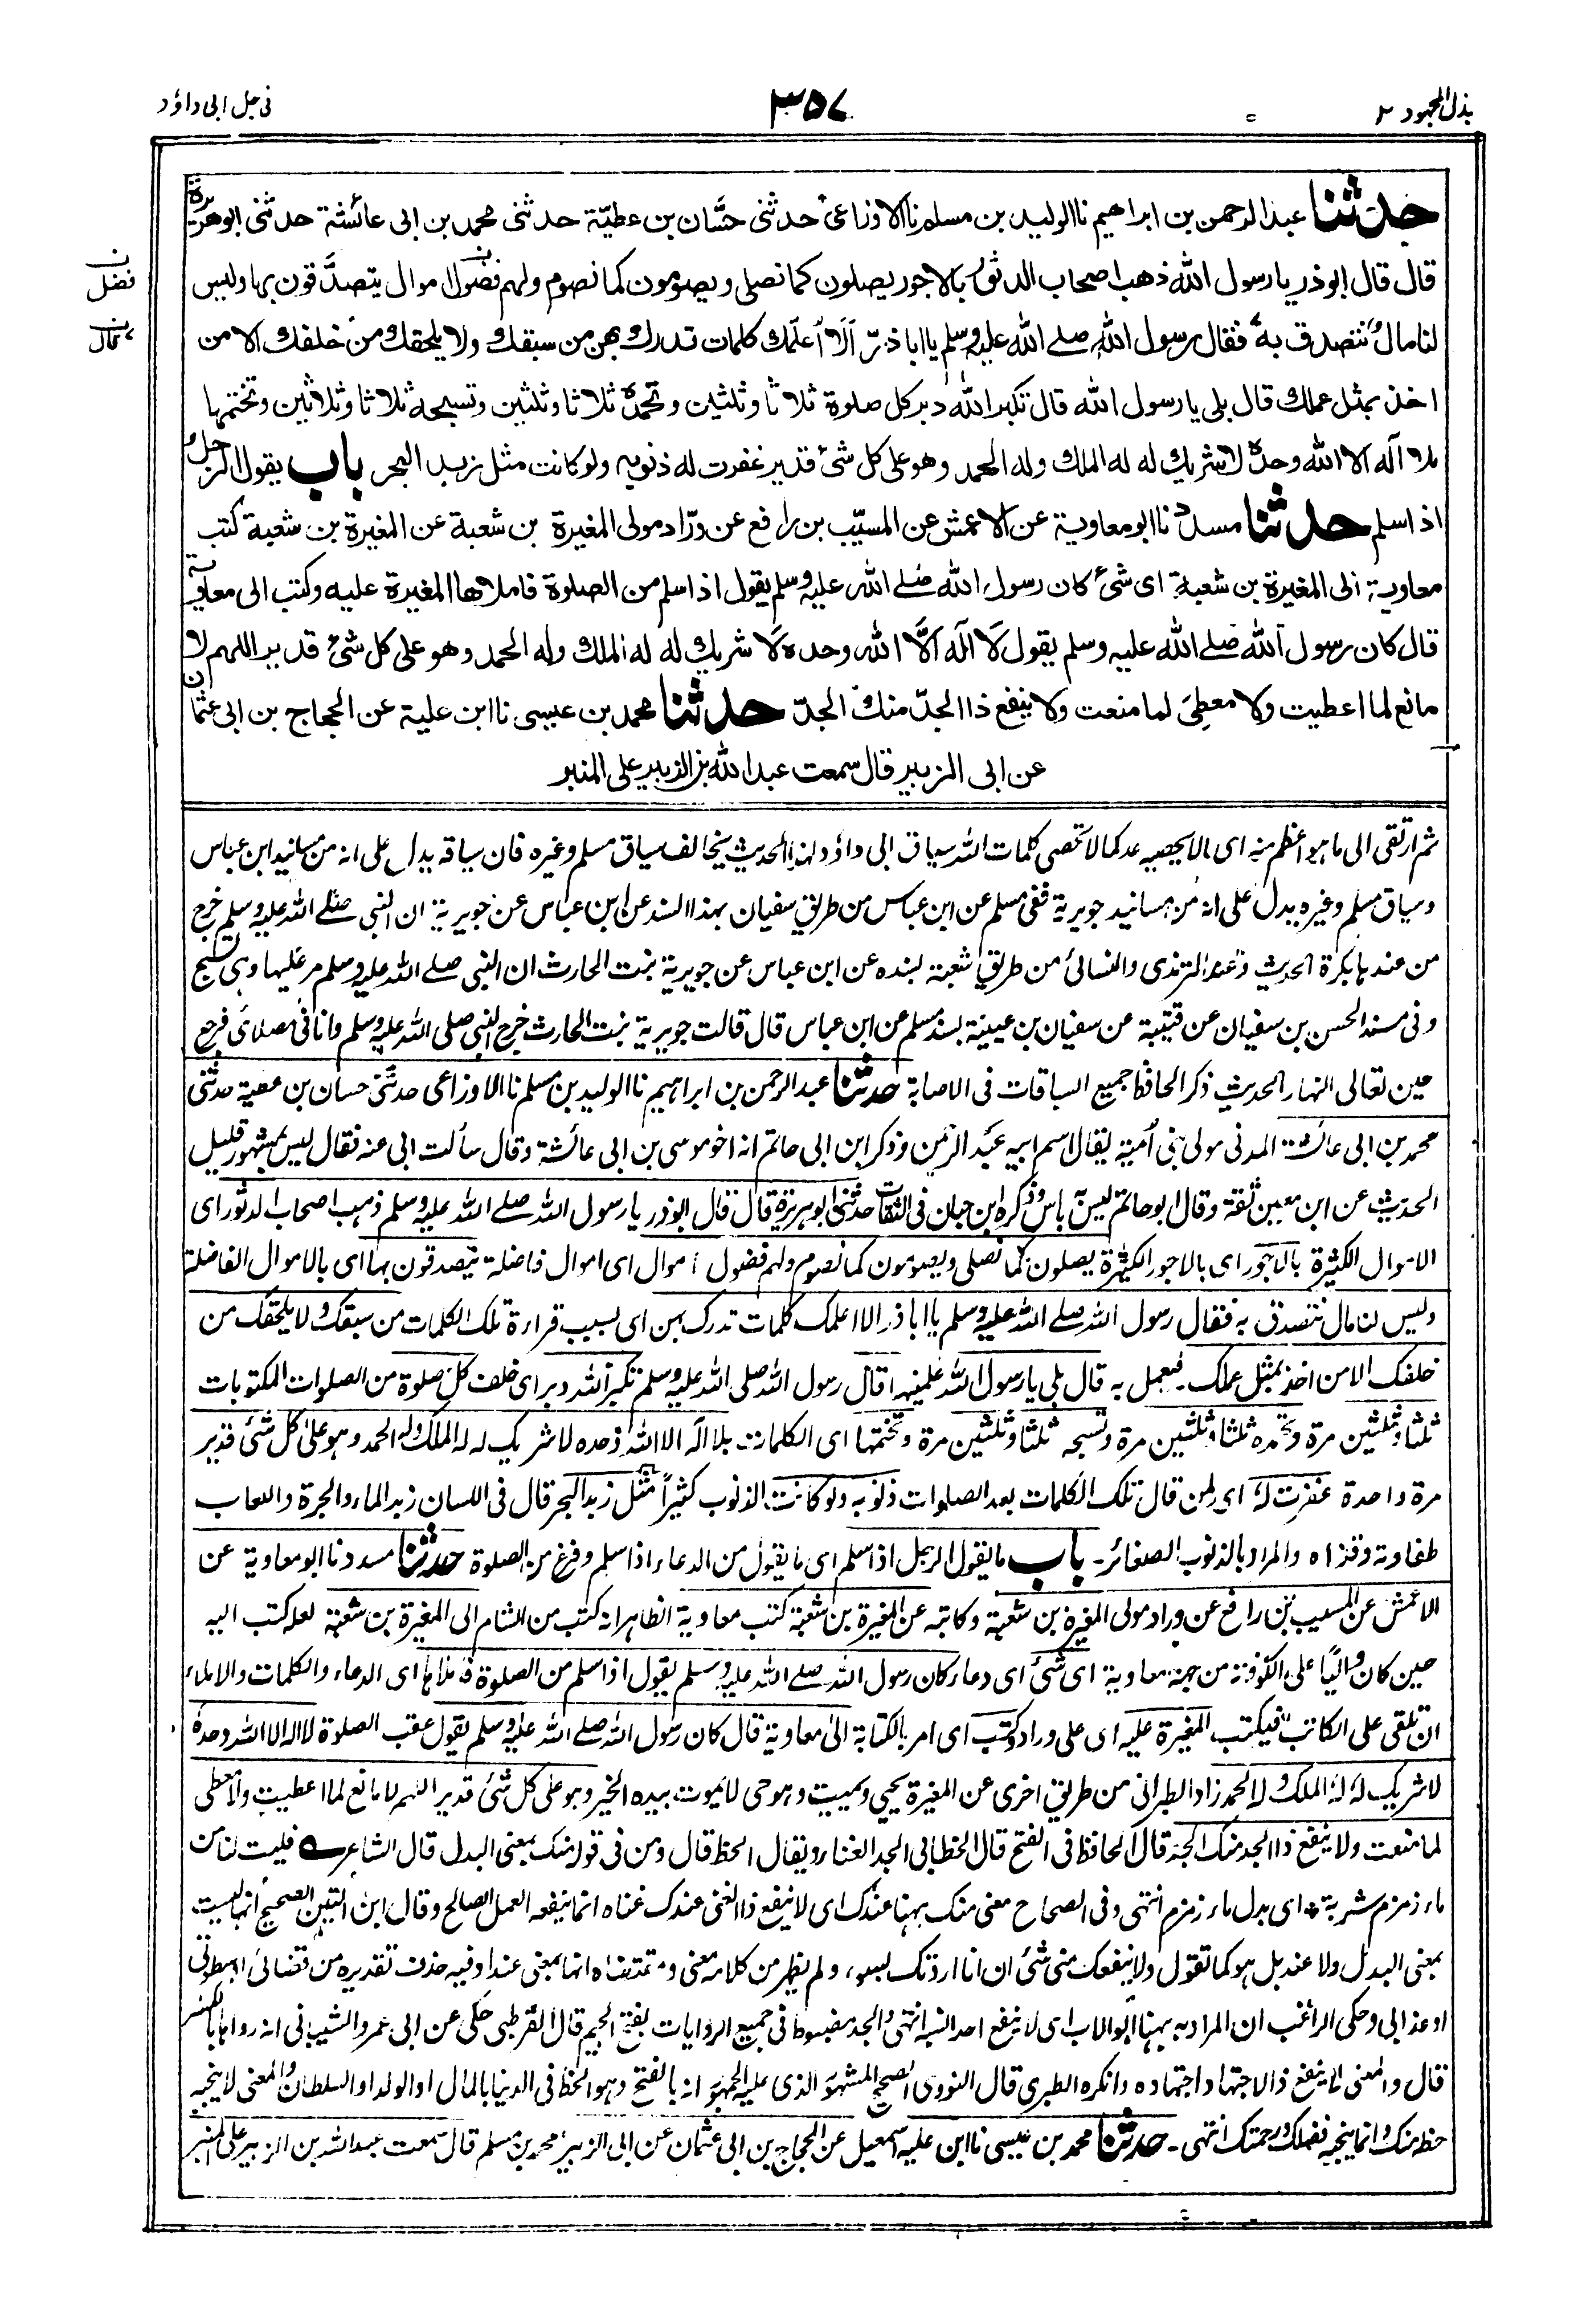 بذل المجهود ٢
٣٥٧
فی حل ابی داؤد
حدثنا عبد الرحمن بن ابراهیم نا الولید بن مسلم نا الاوزاعی حدثنی حسَّان بن عطیّة حدثنی محمد بن ابی عائشة حدثنی ابوهریرة
قال قال ابوذر یا رسول الله ذهب اصحاب الدثور بالاجور یصلون کما نصلی ویصومون کما نصوم ولهم فضول اموال یتصدَّقون بها ولیس
فضل
لنا مال نتصدق به فقال رسول الله صلے الله علیه وسلم یا ابا ذرّ اَلَا اُعلّمك کلمات تدرك بهن من سبقك ولا یلحقك من خلفك الا من
اخذ بمثل عملك قال بلی یا رسول الله قال تکبر الله دبر کل صلوة ثلاثا وثلثین وتحمده ثلاثا وثلثین وتسبحه ثلاثا وثلاثین وتختمها
بلا آله الا الله وحده لا شریك له له الملك وله الحمد وهو علی کل شئ قدیر غفرت له ذنوبه ولو کانت مثل زبد البحر باب یقول الرجل
اذا سلم حدثنا مسدد نا ابو معاویة عن الاعمش عن المسیّب بن رافع عن ورّاد مولی المغیرة بن شعبة عن المغیرة بن شعبة کتب
معاویة الی المغیرة بن شعبة ای شئ کان رسول الله صلے الله علیه وسلم یقول اذا سلم من الصلوة فاملاها المغیرة علیه وکتب الی معاویة
قال کان رسول الله صلے الله علیه وسلم یقول لَا اٰله اِلَّا الله وحده لَا شریك له له الملك وله الحمد وهو علی کل شئ قدیر اللهم لا
مانع لما اعطیت ولا معطِیَ لما منعت ولا ینفع ذا الجدّ منك الجدّ حدثنا محمد بن عیسی نا ابن علیة عن الحجاج بن ابی عثمان
عن ابی الزبیر قال سمعت عبد الله بن الزبیر علی المنبر
ثم ارتقی الی ما هو اعظم منه ای ما لا یحصیه عد کما لا تحصی کلمات الله سیاق ابی داؤد لهذا الحدیث یخالف سیاق مسلم وغیره فان سیاقه یدل علی انه من مسانید ابن عباس
وسیاق مسلم وغیره یدل علی انه من مسانید جویریة ففی مسلم عن ابن عباس من طریق سفیان بهذا السند عن ابن عباس عن جویریة ان النبی صلے الله علیه وسلم خرج
من عندها بکرة الحدیث وعند الترمذی والنسائی من طریق شعبة بسنده عن ابن عباس عن جویریة بنت الحارث ان النبی صلے الله علیه وسلم مر علیها وهی تسبح
وفی مسند الحسن بن سفیان عن قتیبة عن سفیان بن عیینة بسند مسلم عن ابن عباس قال قالت جویریة بنت الحارث خرج النبی صلی الله علیه وسلم وانا فی مصلائی فرجع
حین تعالی النهار الحدیث ذکر الحافظ جمیع السیاقات فی الاصابة حدثنا عبد الرحمن بن ابراهیم نا الولید بن مسلم نا الاوزاعی حدثنی حسان بن عطیة حدثنی
محمد بن ابی عائشة المدنی مولی بنی اُمیة یقال اسم ابیه عبد الرحمن وذکر ابن ابی حاتم انه اخو موسی بن ابی عائشة وقال سألت ابی عنه فقال لیس بمشهور قلیل
الحدیث عن ابن معین ثقة وقال ابو حاتم لیس به باس وذکره ابن حبان فی الثقات حدثنی ابو هریرة قال قال ابو ذر یا رسول الله صلے الله علیه وسلم ذهب اصحاب الدثور ای
الاموال الکثیرة بالاجور ای بالاجور الکثیرة یصلون کما نصلی ویصومون کما نصوم ولهم فضول اموال ای اموال فاضلة یتصدقون بها ای بالاموال الفاضلة
ولیس لنا مال نتصدق به فقال رسول الله صلے الله علیه وسلم یا ابا ذر الا اعلمک کلمات تدرک بهن ای بسبب قراءة تلک الکلمات من سبقک ولا یلحقک من
خلفک الا من اخذ بمثل عملک۔ فیعمل به قال بلی یا رسول الله علمنیها قال رسول الله صلی الله علیه وسلم تکبر الله دبر ای خلف کل صلوة من الصلوات المکتوبات
ثلثا وثلثین مرة وتحمده ثلثا وثلثین مرة وتسبحه ثلثا وثلثین مرة وتختمها ای الکلمات بلا اله الا الله وحده لا شریک له له الملک وله الحمد وهو علی کل شئ قدیر
مرة واحدة غفرت له ای لمن قال تلک الکلمات بعد الصلوات ذنوبه ولو کانت الذنوب کثیراً مثل زبد البحر قال فی اللسان زبد الماء والجرة واللعاب
طفاوته وقذاه والمراد بالذنوب الصغائر۔ باب ما یقول الرجل اذا سلم ای ما یقول من الدعاء اذا سلم وفرغ من الصلوة حدثنا مسدد نا ابو معاویة عن
الاعمش عن المسیب بن رافع عن وراد مولی المغیرة بن شعبة وکاتبه عن المغیرة بن شعبة کتب معاویة الظاهر انه کتب من الشام الی المغیرة بن شعبة لعله کتب الیه
حین کان والیًا علی الکوفة من جهة معاویة ای شئ ای دعاء کان رسول الله صلے الله علیه وسلم یقول اذا سلم من الصلوة فاملاها ای الدعاء والکلمات والاملاء
ان تلقی علی الکاتب فیکتب المغیرة علیه ای علی وراد وکتب ای امر بالکتابة الی معاویة قال کان رسول الله صلے الله علیه وسلم یقول عقب الصلوة لا اله الا الله وحده
لا شریک له له الملک وله الحمد زاد الطبرانی من طریق اخری عن المغیرة یحیی ویمیت وهو حی لا یموت بیده الخیر وهو علی کل شئ قدیر اللهم لا مانع لما اعطیت ولا معطی
لما منعت ولا ینفع ذا الجد منک الجد قال الحافظ فی الفتح قال الخطابی الجد الغناء ویقال الحظ قال ومن فی قوله منک بمعنی البدل قال الشاعر فلیت لنا من
ماء زمزم شربة * ای بدل ماء زمزم انتهی وفی الصحاح معنی منک ههنا عندک ای لا ینفع ذا الغنی عندک غناه انما ینفعه العمل الصالح وقال ابن التین الصحیح انها لیست
بمعنی البدل ولا عند بل هو کما تقول ولا ینفعک منی شئ ان انا اردتک بسوء، ولم یظهر من کلامه معنی ومقتضاه انها بمعنی عند او فیه حذف تقدیره من قضائی او سطوتی
او عذابی وحکی الراغب ان المراد به ههنا ابو الاب ای لا ینفع احدا نسبه انتهی والجد مضبوط فی جمیع الروایات بفتح الجیم قال القرطبی حکی عن ابی عمرو الشیبانی انه رواها بالکسر
قال والمعنی لا ینفع ذا الاجتهاد اجتهاده وانکره الطبری قال النووی الصحیح المشهور الذی علیه الجمهور انه بالفتح وهو الحظ فی الدنیا بالمال او الولد او السلطان والمعنی لا ینجیه
حظه منک وانما ینجیه فضلک ورحمتک انتهی۔ حدثنا محمد بن عیسی نا ابن علیة اسمعیل عن الحجاج بن ابی عثمان عن ابی الزبیر محمد بن مسلم قال سمعت عبد الله بن الزبیر علی المنبر